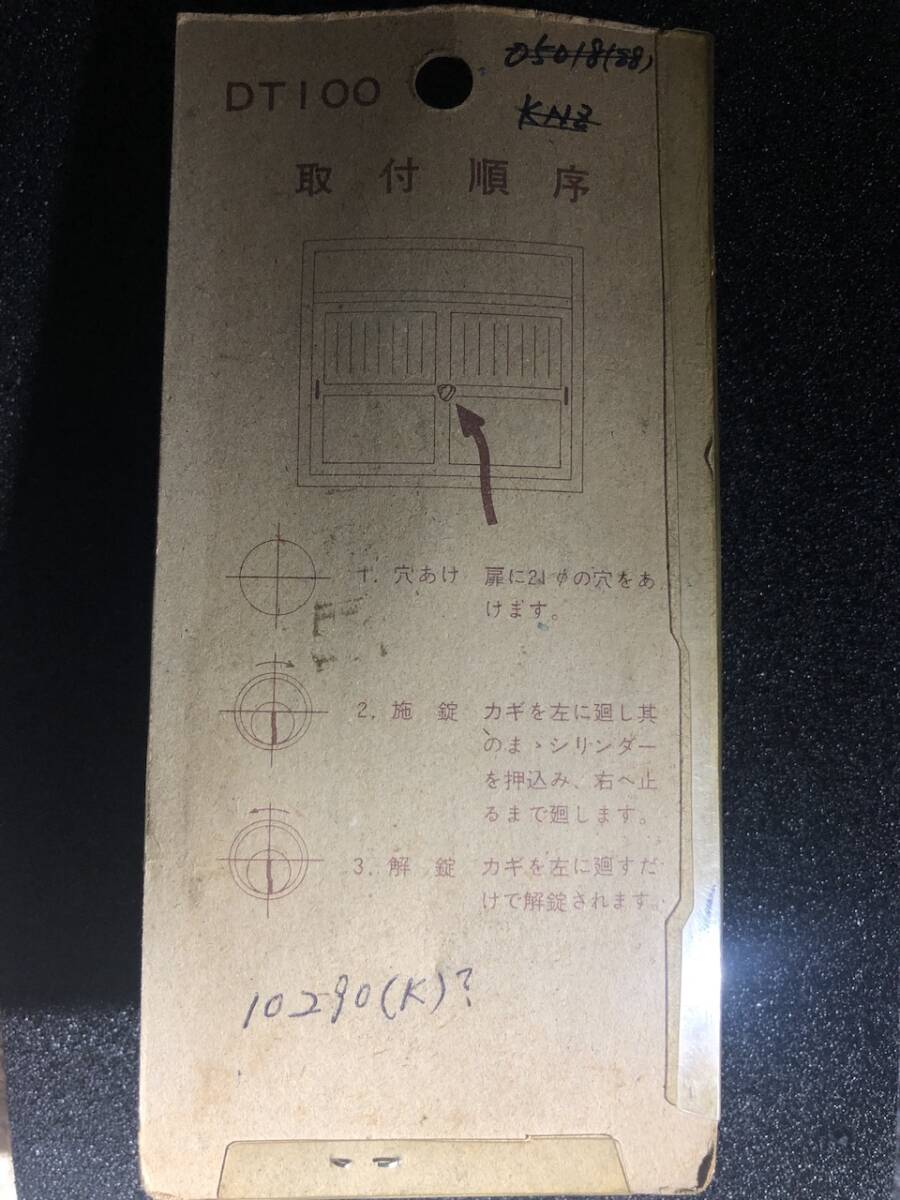 05018(88)
DT100
KNZ
取付順序
1. 穴あけ 扉に21φの穴をあ
けます。
2. 施錠 カギを左に廻し其
のまゝシリンダー
を押込み、右へ止
るまで廻します。
3. 解錠 カギを左に廻すだ
けで解錠されます。
10290(K)?